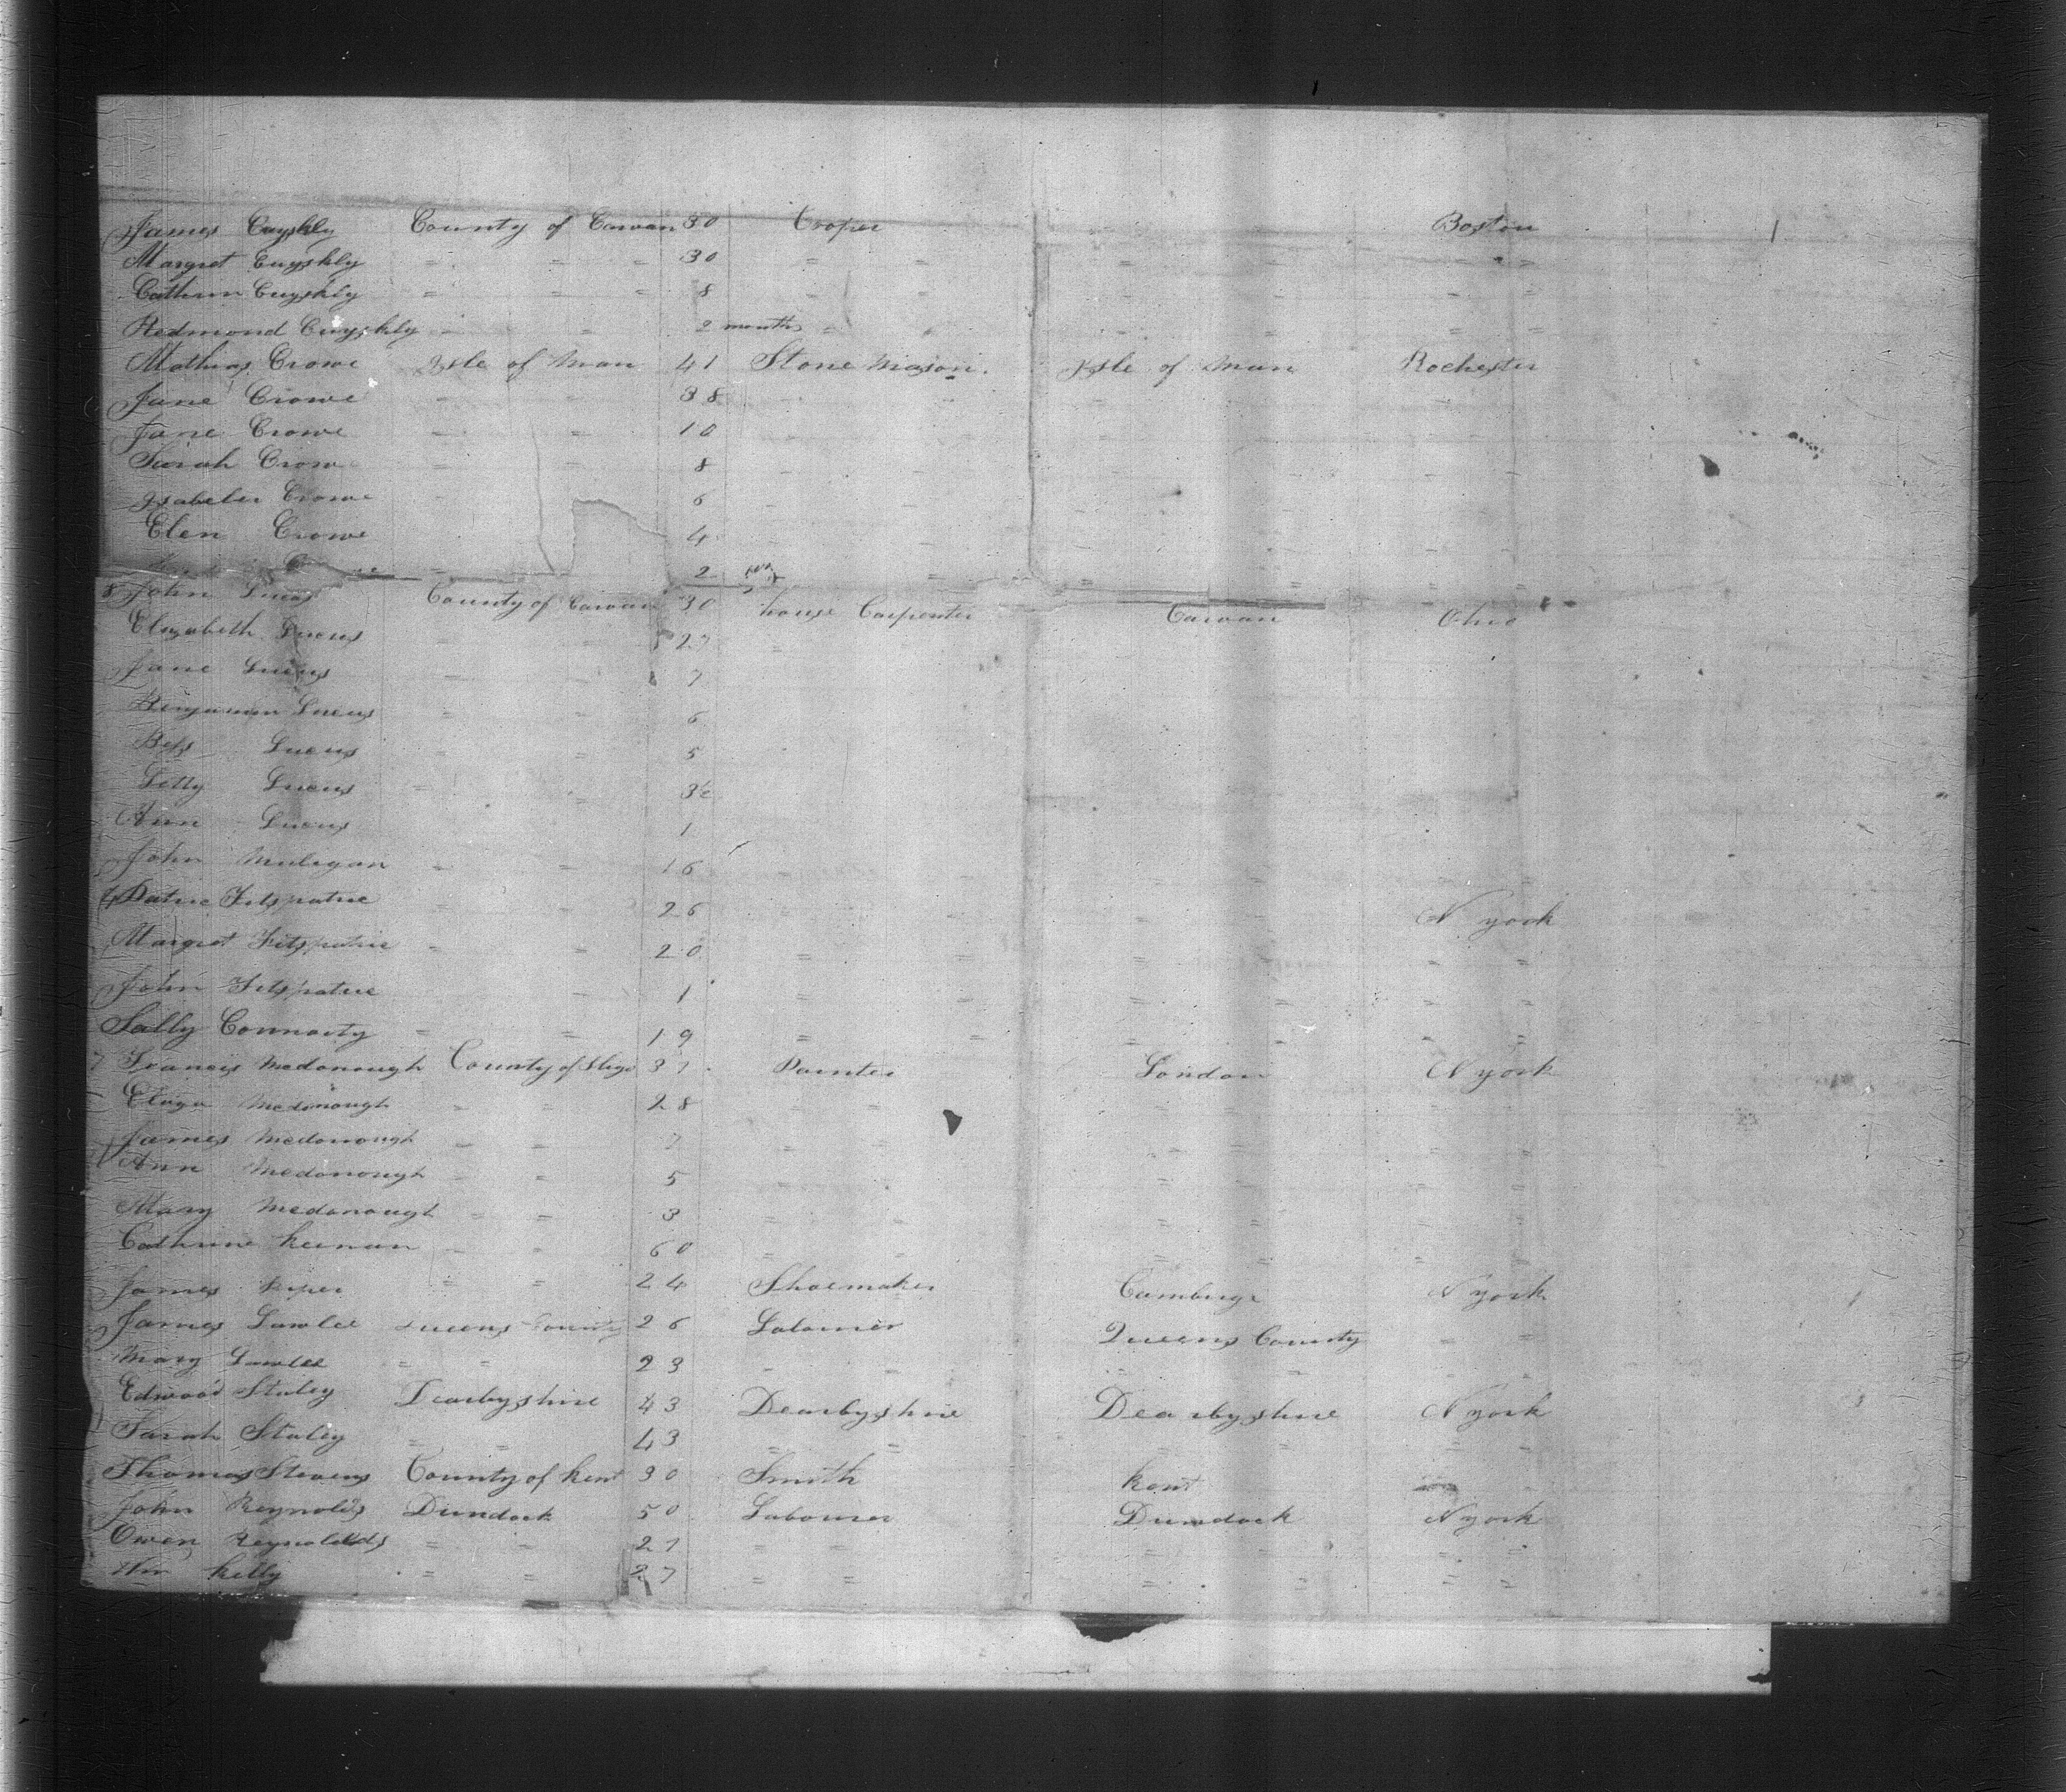 James Cuyskly County of Cavan 30 Cooper Boston 1
Margret Cuyskly = = = 30 = = = = = =
Cathrin Cuyskly = = = 8 = = = = = =
Redmond Cuyskly = = 2 months = = = = = =
Mathias Crowe Isle of Man 41 Stone Mason. Isle of Man Rochester
Jane Crowe = = 38
Jane Crowe = = 10
Sarah Crow = = 8
Isabeler Crowe = 6
Elen Crowe 4
2
8 John Lucus County of Cavan 30 house Carpenter Cavan Ohio
Elizabeth Lucus = = 27
Jane Lucus = = 7
Benjamin Lucus = = 6
Bess Lucus = = 5
Letty Lucus = = 3½
Ann Lucus 1
John Mulegan = = 16
Patric Fitspatric = = 26 N york
Margret Fitspatric = = 20 = = = = = =
John Fitspatric = 1 = = = = = =
Sally Connarty = = 19 = = = = = =
7 Francis Mcdonough County of Sligo 37 Painter London N york
Eliza Mcdonough = = 28
James Mcdonough = = 7
Ann Mcdonough = = 5
Mary Mcdonough = = 3
Cathrine Keenan = = 60
James = = 24 Shoemaker Cambrige N york
James Lawlee Queens County 26 Labourer Queens County = =
Mary Lawlee = = 23
Edward Staley Dearbyshire 43 Dearbyshire Dearbyshire N york
Sarah Staley = = 43 = = = = = =
Thomas Stevens County of Kent 30 Smith Kent
John Reynolds Dundack 50 Labourer Dundack N york
Owen Reynolds = = 27 = = = = = =
Wm Kelly = = 27 = = = = = =